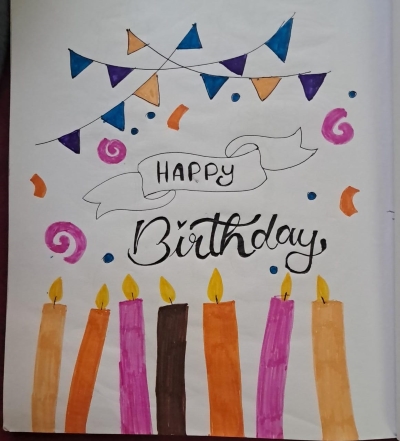 HAPPY
Birthday,